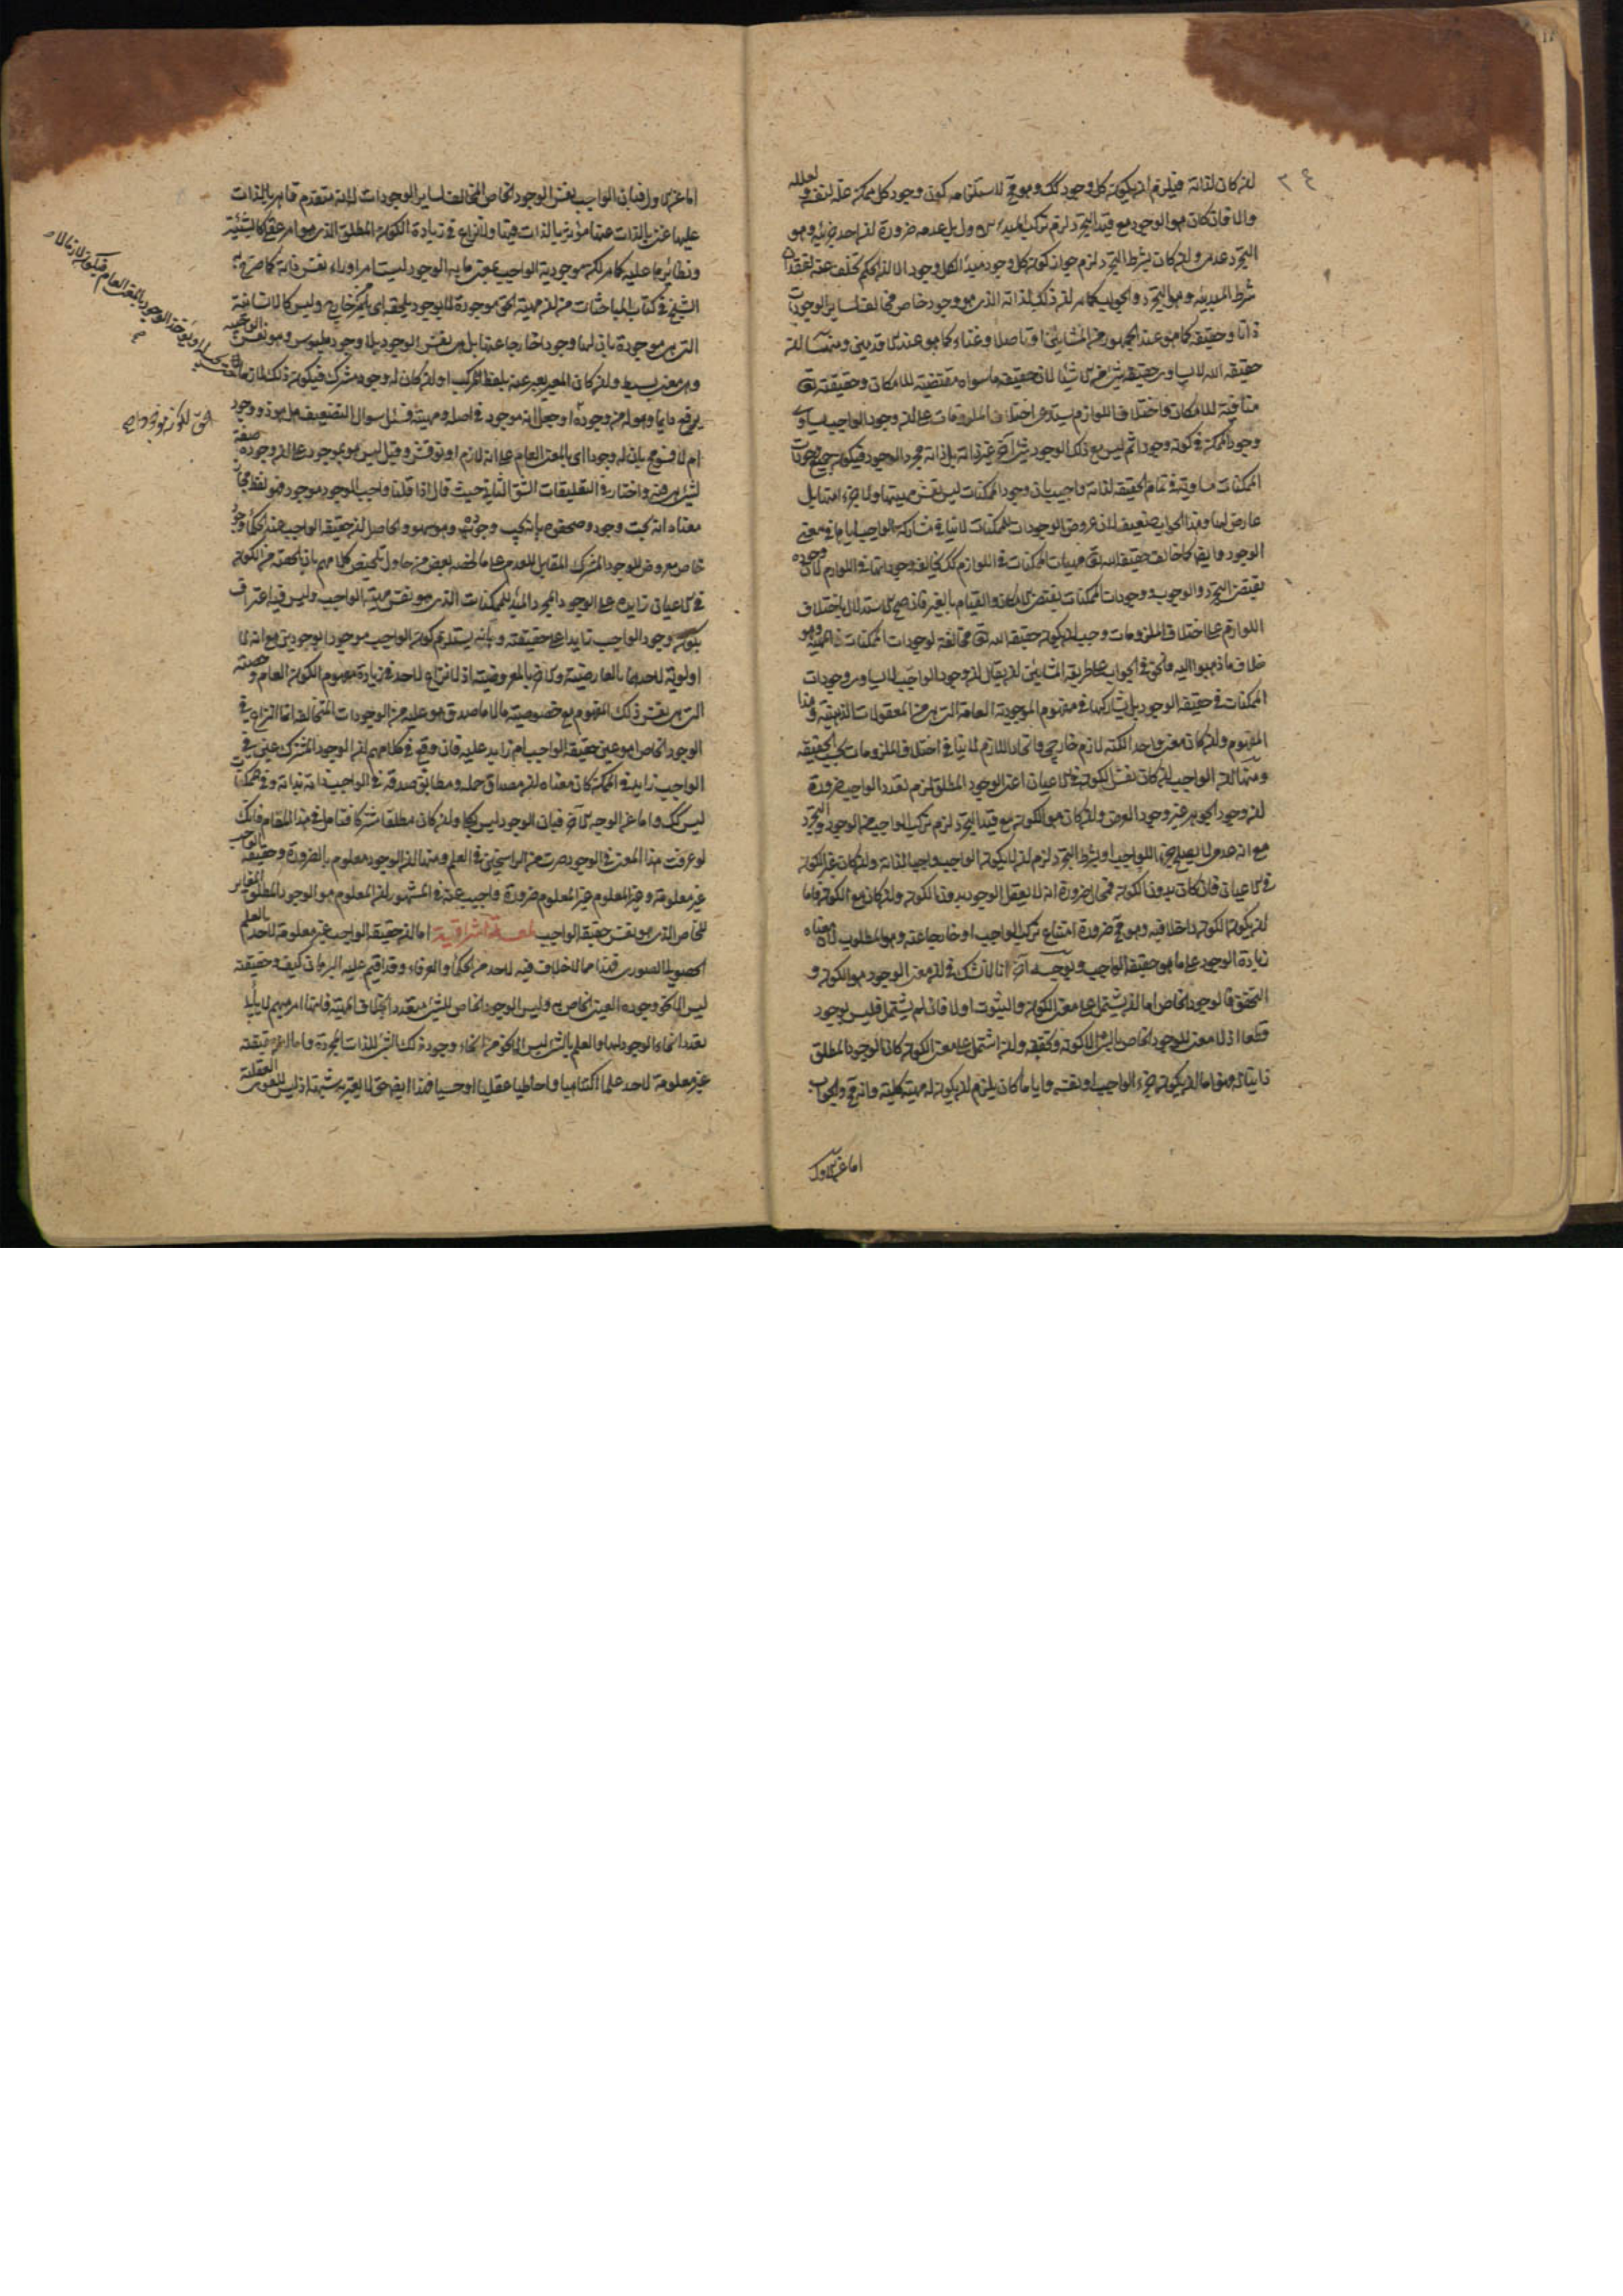 لذاته فيلزم ان يكون كل وجود كذلك وهو مح لاستلزامه كون وجود كل ممكن علة لنفسه و لعلله
والا فان كان هو الوجود مع قيد التجرد لزم تركب المبدء الاول بل عدمه ضرورة ان احد جزئيه وهو
التجرد عدمي وان كان بشرط التجرد لزم جواز كون كل وجود مبدأ لكل وجود الا ان الحكم تخلف عنه لفقدان
شرط المبدئية وهو التجرد والجواب كما مر ان ذلك لذاته الذي هو وجود خاص مخالف لساير الوجودات
ذاتا وحقيقة كما هو عند الجمهور من المشائين او تاصلا وغناء كما هو عند الاقدمين ومنها ان
حقيقة الله لا يساوي حقيقة شيء من الاشياء لان حقيقة ما سواه مقتضية للامكان وحقيقته تع
منافية للامكان واختلاف اللوازم يستدعي اختلاف الملزومات على ان وجود الواجب يساوي
وجود الممكن في كونه وجودا ثم ليس مع ذلك الوجود شيء آخر غير ذاته بل ذاته مجرد الوجود فيكون جميع وجودات
الممكنات مساوية في تمام الحقيقة لذاته واجيب بان وجود الممكنات ليس نفس مهيتها ولا جزء منها بل
عارض لها وهذا الجواب ضعيف لان عروض الوجودات للممكنات لا ينافي مشاركة الواجب اياها في معنى
الوجود وايضا كما خالف حقيقة الله تع مهيات الممكنات في اللوازم كذلك يخالف وجوداتها في اللوازم لان وجوده
يقتضي التجرد والوجوب ووجودات الممكنات يقتضي الامكان والقيام بالغير فان صح الاستدلال باختلاف
اللوازم على اختلاف الملزومات وجب ان يكون حقيقة الله تع مخالفة لوجودات الممكنات في المهية وهو
خلاف ما ذهبوا اليه فالحق في الجواب على طريقة المشائين ان يقال ان وجود الواجب لا يساوي وجودات
الممكنات في حقيقة الوجود بل يشاركها في مفهوم الموجودية العامة التي هي من المعقولات الذهنية وهذا
المفهوم وان كان معنى واحدا لكنه لازم خارجي واتحاد اللازم لا ينافي اختلاف الملزومات بحسب الحقيقة
ومنها ان الواجب ان كان نفس الكون في الاعيان اعني الوجود المطلق لزم تعدد الواجب ضرورة
ان وجود الجوهر غير وجود العرض وان كان هو الكون مع قيد التجرد لزم تركب الواجب من الوجود والتجرد
مع انه عدمي لا يصلح جزء اللواجب او بشرط التجرد لزم ان لا يكون الواجب واجبا لذاته وان كان غير الكون
في الاعيان فان كان بدون الكون فمحال ضرورة انه لا يعقل الوجود بدون الكون وان كان مع الكون فاما
ان يكون الكون داخلا فيه وهو مح ضرورة امتناع تركب الواجب او خارجا عنه وهو المطلوب لان معناه
زيادة الوجود على ما هو حقيقة الواجب وبوجه آخر انا لا نشك في ان معنى الوجود هو الكون و
التحقق فالوجود الخاص اما ان يشتمل على معنى الكون والثبوت اولا فان لم يشتمل فليس بوجود
قطعا اذ لا معنى للوجود الخاص بالشيء الا كونه وتحققه وان اشتمل على معنى الكون كان الوجود المطلق
ذاتيا له وهو اما ان يكون جزء الواجب او نفسه وايا ما كان يلزم ان يكون له مهية كلية وانه مح والجواب
اما عن الاول
اما عن الاول فبان الواجب نفس الوجود الخاص المخالف لساير الوجودات لانه متقدم قاهر بالذات
عليها غني بالذات عنها مؤثر بالذات فيها ولا نزاع في زيادة الكون المطلق الذي هو امر عقلي كالشيئية
ونظائرها عليه كما مر لكن موجودية الواجب بمعنى ما به الوجود ليست امرا وراء نفس ذاته كما صرح به
الشيخ في كتاب المباحثات من ان مهية الحق موجودة لا بوجود يلحقها اي من خارج وليس كالانسانية
التي هي موجودة بان لها وجودا خارجا عنها بل هي نفس الوجود بلا وجود ملبوس وهو نفس الواجبية
وهي معنى بسيط وان كان المعبر يعبر عنه بلفظ المركب او ان كان له وجود مشترك فيكون ذلك لازما
يرفع دايما وهو له من وجوده او جعل انه موجود في اصله ومهيته فسئل سوال التضعيف هل هو ذو وجود
ام لا فسومح بان له وجودا اي بالمعنى العام على انه لازم او نوقش وقيل ليس هو بموجود على ان وجوده صفة
لشيء هي فيه واختار في التعليقات الشق الثاني حيث قال اذا قلنا واجب الوجود موجود فهو لفظ مجاز
معناه انه يجب وجوده والحاصل ان حقيقة الواجب عند الحكماء وجود
خاص معروض للوجود المشترك المقابل للعدم على ما لخصه البعض ممن حاول تلخيص كلامهم بان الحصة من الكون
في الاعيان زايدة على الوجود المجرد المبدأ للممكنات الذي هو نفس مهية الواجب وليس فيه اعتراف
بكون وجود الواجب زايدا على حقيقته وبانه يستلزم كون الواجب موجودا بوجودين مع انه لا
اولوية لاحدهما بالعارضية وكذا بالمعروضية اذ لا نزاع لاحد في زيادة مفهوم الكون العام وحصته
التي هي نفس ذلك المفهوم مع خصوصية ما لا ما صدق هو عليه من الوجودات المتخالفة انما النزاع في
الوجود الخاص اهو عين حقيقة الواجب ام زايد عليه فان وقع في كلامهم ان الوجود المشترك عين في
الواجب زايد في الممكن كان معناه ان مصداق حمله ومطابق صدقه في الواجب ذاته بذاته وفي الممكنات
ليس كذلك واما عن الوجه الآخر فبان الوجود ليس كليا وان كان مطلقا مشتركا فتامل في هذا المقام فانك
لو عرفت هذا المعنى في الوجود صرت من الراسخين في العلم ومنها ان الوجود معلوم بالضرورة وحقيقة الواجب
غير معلومة وغير المعلوم غير المعلوم ضرورة واجيب عنه في المشهور ان المعلوم هو الوجود المطلق المغاير
للخاص الذي هو نفس حقيقة الواجب لمعة اشراقية اما ان حقيقة الواجب غير معلومة لاحد بالعلم
الحصولي الصوري فهذا مما لا خلاف فيه لاحد من الحكماء والعرفاء وقد اقيم عليه البرهان كيف وحقيقته
ليس الا نحو وجوده العيني الخاص به وليس الوجود الخاص للشيء متعددا بخلاف المهية فانها امر مبهم لا يابى
تعدد انحاء الوجود لها والعلم بالشيء ليس الا نحوا من انحاء وجود ذلك الشيء للذات المجردة واما ان حقيقته
غير معلومة لاحد علما اكتناهيا واحاطيا عقليا او حسيا فهذا ايضا حق لا يعتريه شبهة اذ ليس للقوى العقلية